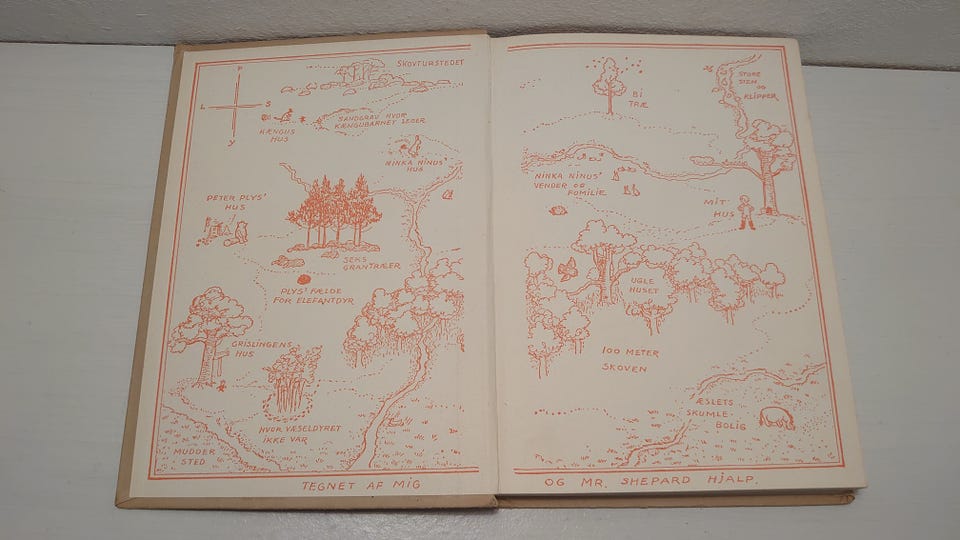 SKOVTURSTEDET
P
L S
Y
SANDGRAV HVOR
KÆNGUBARNET LEGER
KÆNGUS
HUS
NINKA NINUS'
HUS
PETER PLYS'
HUS
SEKS
GRANTRÆER
PLYS' FÆLDE
FOR ELEFANTDYR
GRISLINGENS
HUS
HVOR VÆSELDYRET
IKKE VAR
MUDDER
STED
TEGNET AF MIG
BI
TRÆ
STORE
STEN
OG
KLIPPER
NINKA NINUS'
VENDER OG
FOMILIE
MIT
HUS
UGLE
HUSET
100 METER
SKOVEN
ÆSLETS
SKUMLE-
BOLIG
OG MR. SHEPARD HJALP.